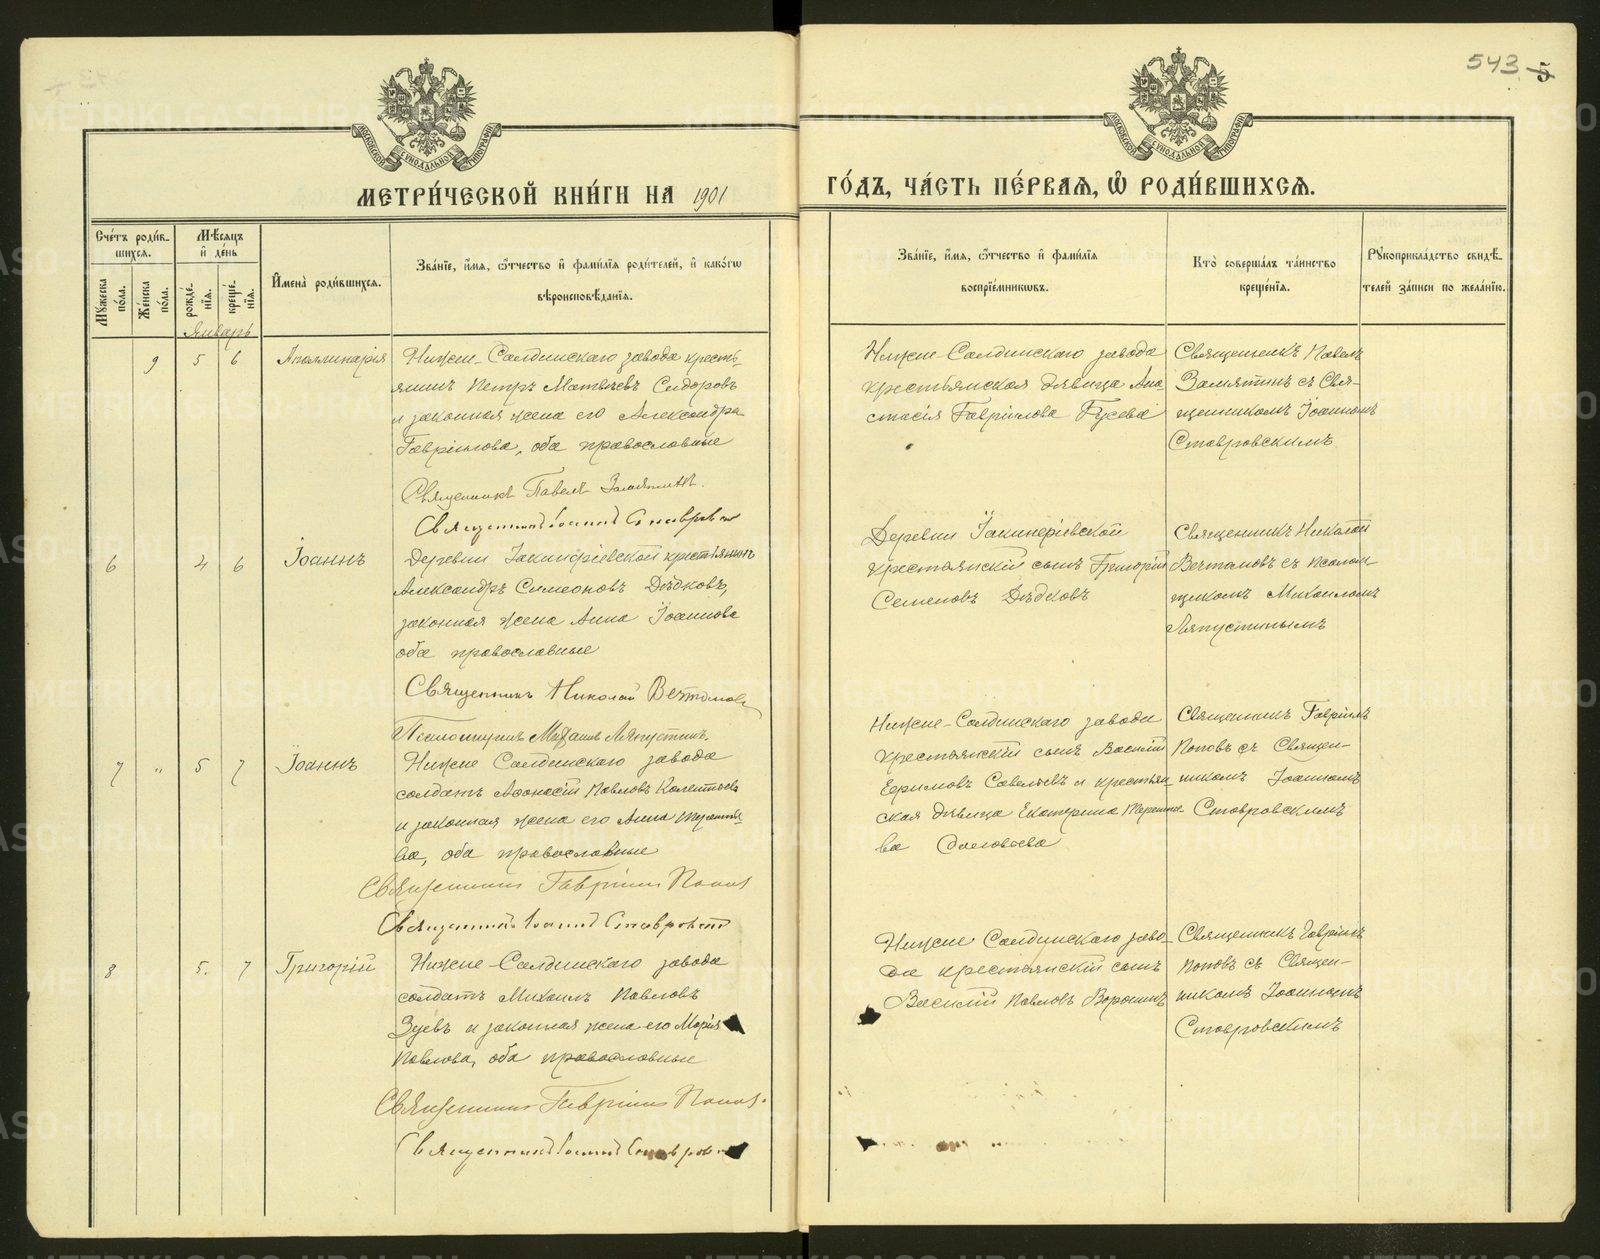 543 5
МОСКОВСКОЙ СѴНОДАЛЬНОЙ ТИПОГРАФІИ
МОСКОВСКОЙ СѴНОДАЛЬНОЙ ТИПОГРАФІИ
МЕТРИ́ЧЕСКОЙ КНИ́ГИ НА 1901
ГО́ДЪ, ЧА́СТЬ ПЕ́РВАЯ, Ѡ҆ РОДИ́ВШИХСЯ.
Сче́тъ роди́в-
шихся.
Мѣ́сяцъ
и҆ де́нь
Мꙋ́жеска по́ла.
Же́нска по́ла.
рожде́нїя.
креще́нїя.
И҆мена̀ роди́вшихся.
Зва́нїе, и҆́мя, ѻ҆́тчество и҆ фами́лїя роди́телей, и҆ како́гѡ
вѣроисповѣ́данїя.
Зва́нїе, и҆́мя, ѻ҆́тчество и҆ фами́лїя
воспрїе́мникѡвъ.
Кто̀ соверша́лъ та́инство
креще́нїя.
Рꙋкоприкла́дство свидѣ́-
телей за́писи по жела́нїю.
Январь
9 5 6 Аполлинарія
Нижне-Салдинскаго завода кресть-
янинъ Петръ Матвѣевъ Сидоровъ
и законная жена его Александра
Гавріилова, оба православные
Священникъ Павелъ Замятинъ.
Священникъ Іоаннъ Ставровскій
Нижне-Салдинскаго завода
крестьянская дѣвица Ана
стасія Гавріилова Гусева
Священникъ Павелъ
Замятинъ съ Свя-
щенникомъ Іоанномъ
Ставровскимъ
6 4 6 Іоаннъ
Деревни Іакинфіевской крестьянинъ
Александръ Симеоновъ Дѣдковъ,
законная жена Анна Іоаннова
оба православные
Священникъ Николай Вечтомовъ
Псаломщикъ Михаилъ Ляпустинъ.
Деревни Іакинфіевской
крестьянскій сынъ Григорій
Семеновъ Дѣдковъ
Священникъ Николай
Вечтомовъ съ псалом-
щикомъ Михаиломъ
Ляпустинымъ
7 " 5 7 Іоаннъ
Нижне Салдинскаго завода
солдатъ Аѳанасій Павловъ
и законная жена его Анна Терентье-
ва, оба православные
Священникъ Гавріилъ Поповъ
Священникъ Іоаннъ Ставровскій
Нижне-Салдинскаго завода
крестьянскій сынъ Василій
Ефимовъ Савельевъ и крестьян-
ская дѣвица Екатерина Терентье
ва Соловьева
Священникъ Гавріилъ
Поповъ съ Священ-
никомъ Іоанномъ
Ставровскимъ
8 5. 7 Григорій
Нижне-Салдинскаго завода
солдатъ Михаилъ Павловъ
Зуевъ и законная жена его Марія
Павлова, оба православные
Священникъ Гавріилъ Поповъ.
Священникъ Іоаннъ Ставровскій
Нижне Салдинскаго заво-
да крестьянскій сынъ
Василій Павловъ Воронинъ
Священникъ Гавріилъ
Поповъ съ Священ-
никомъ Іоанномъ
Ставровскимъ
METRIKI.GASO-URAL.RU